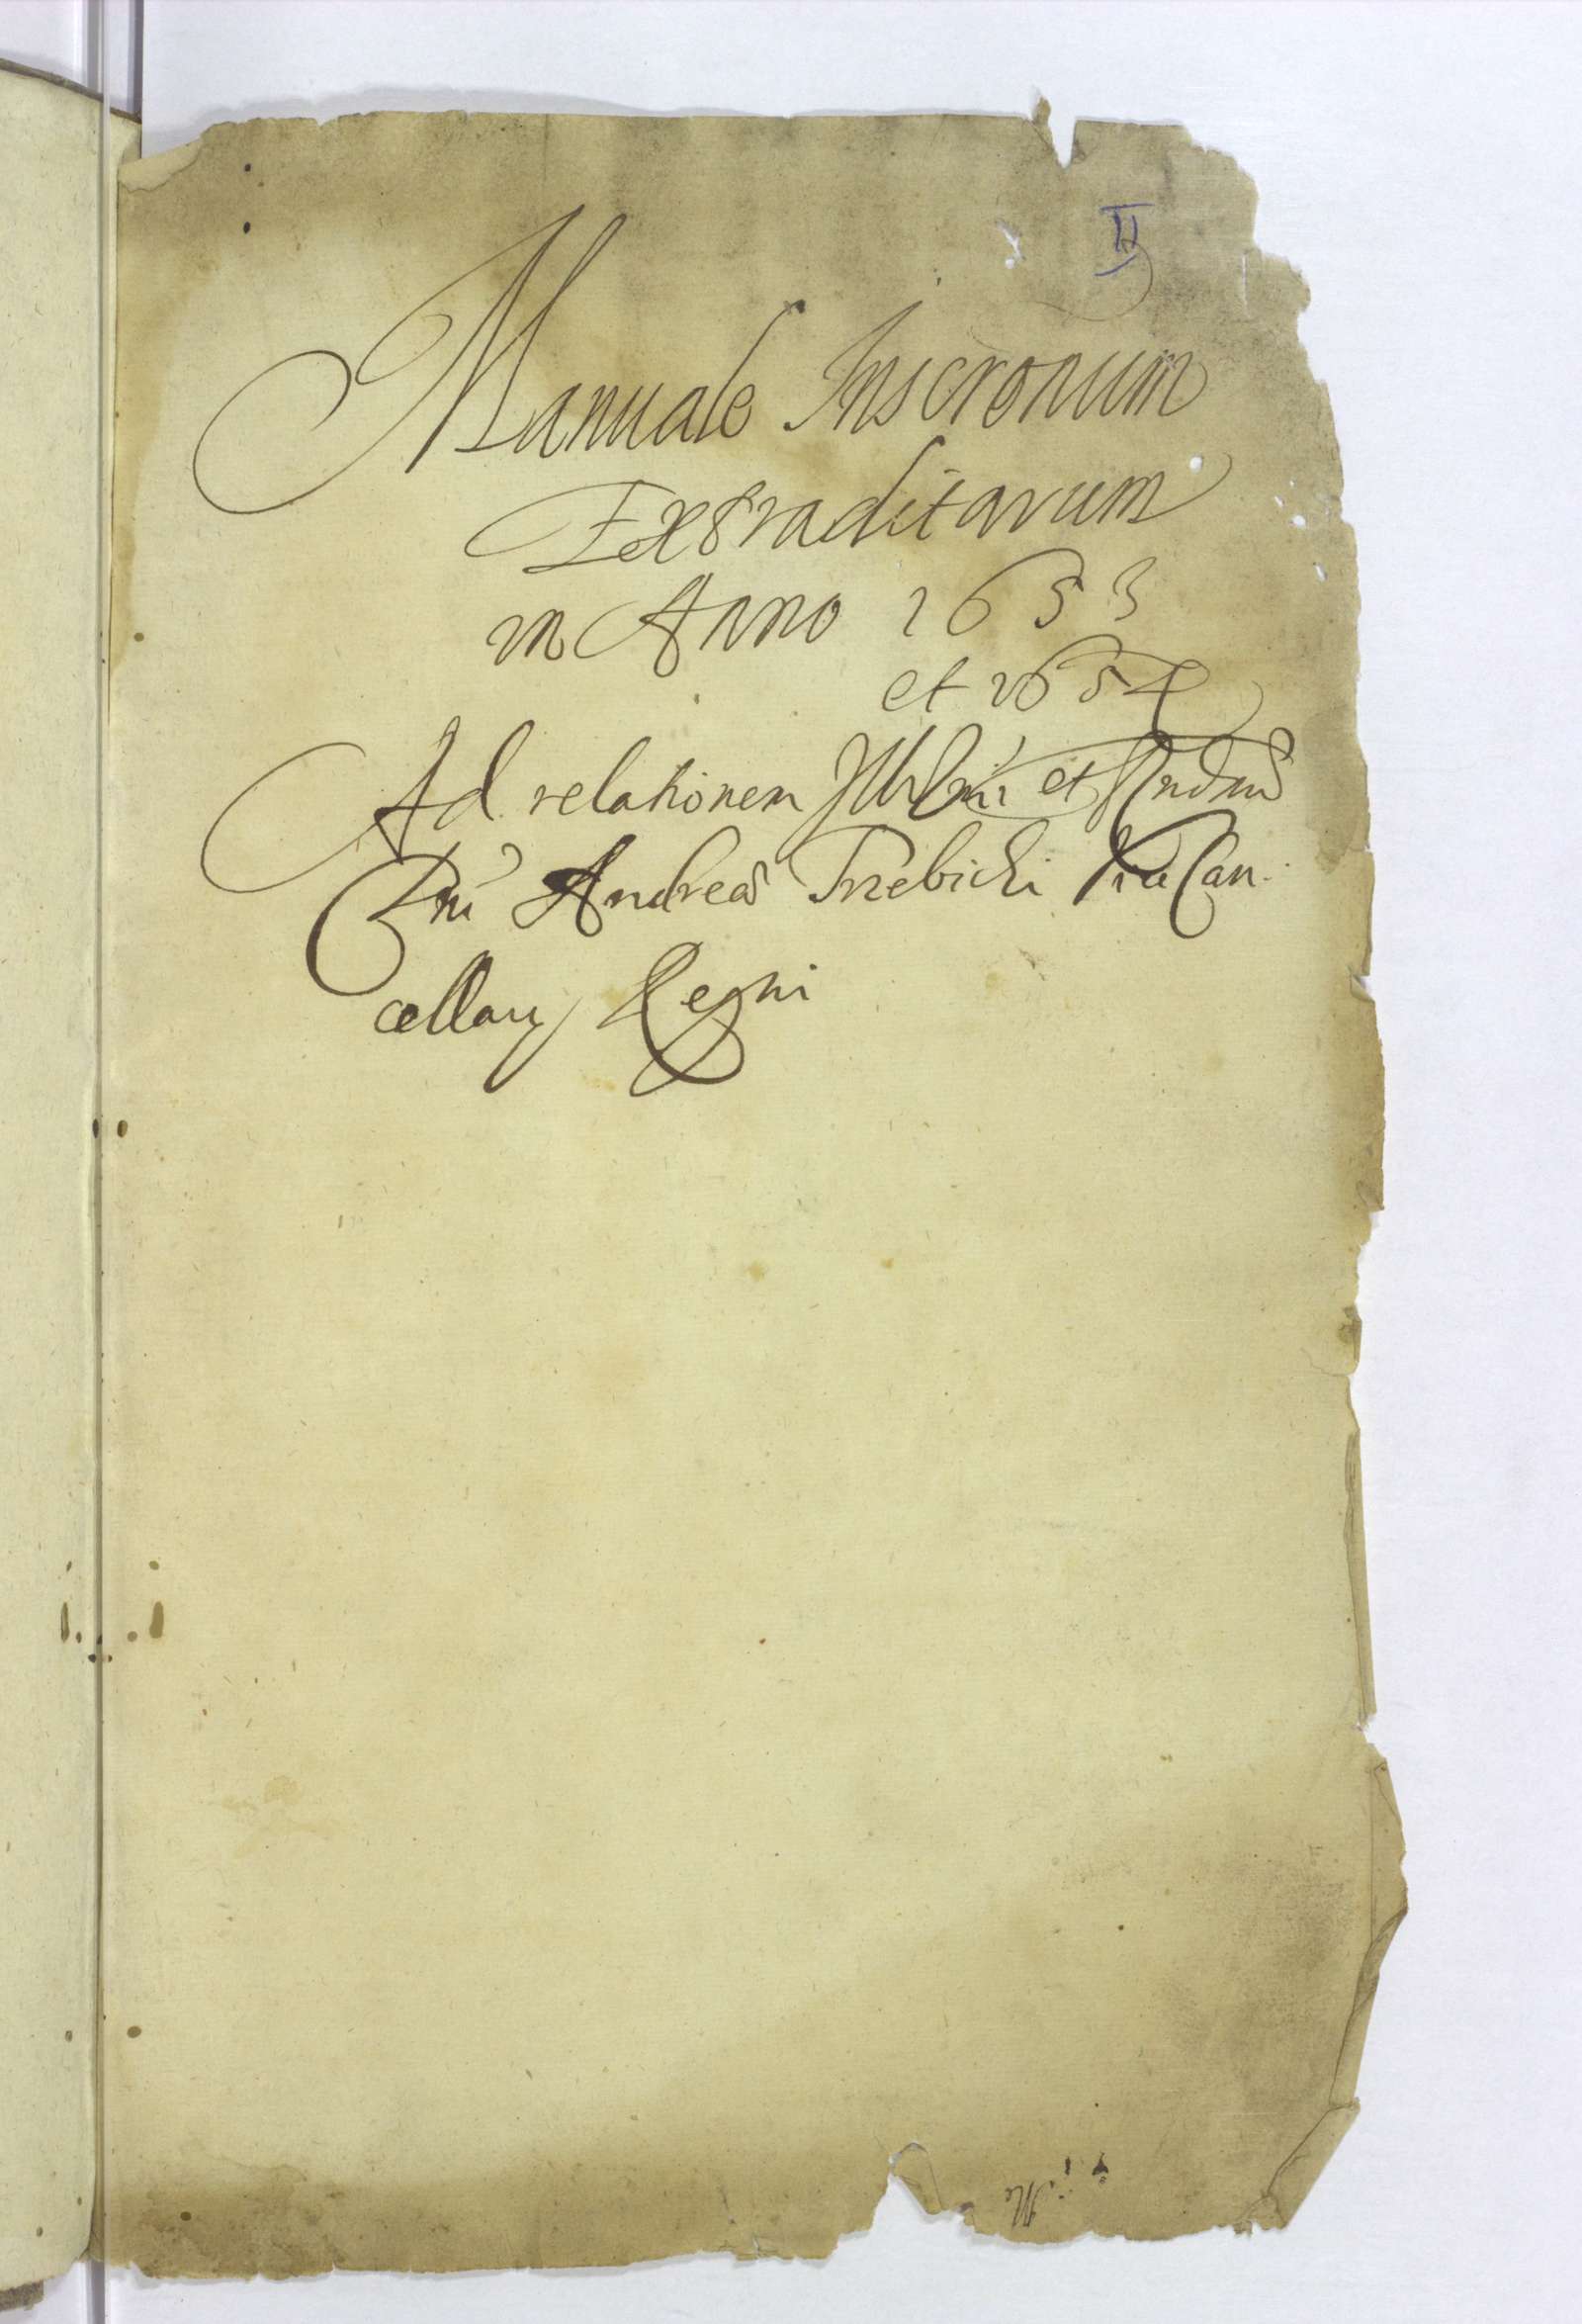 II
Manuale Inscronum
Extraditarum
in Anno 1653
et 1654
Ad relationem Illrmi et Rndmi
Dni Andreae Trzebicki ViceCan.
cellarij Regni